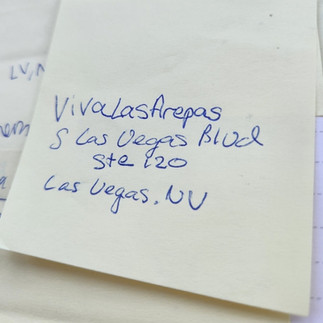 LV, N
VivaLasArepas
S Las Vegas Blvd
Ste 120
Las Vegas, NV